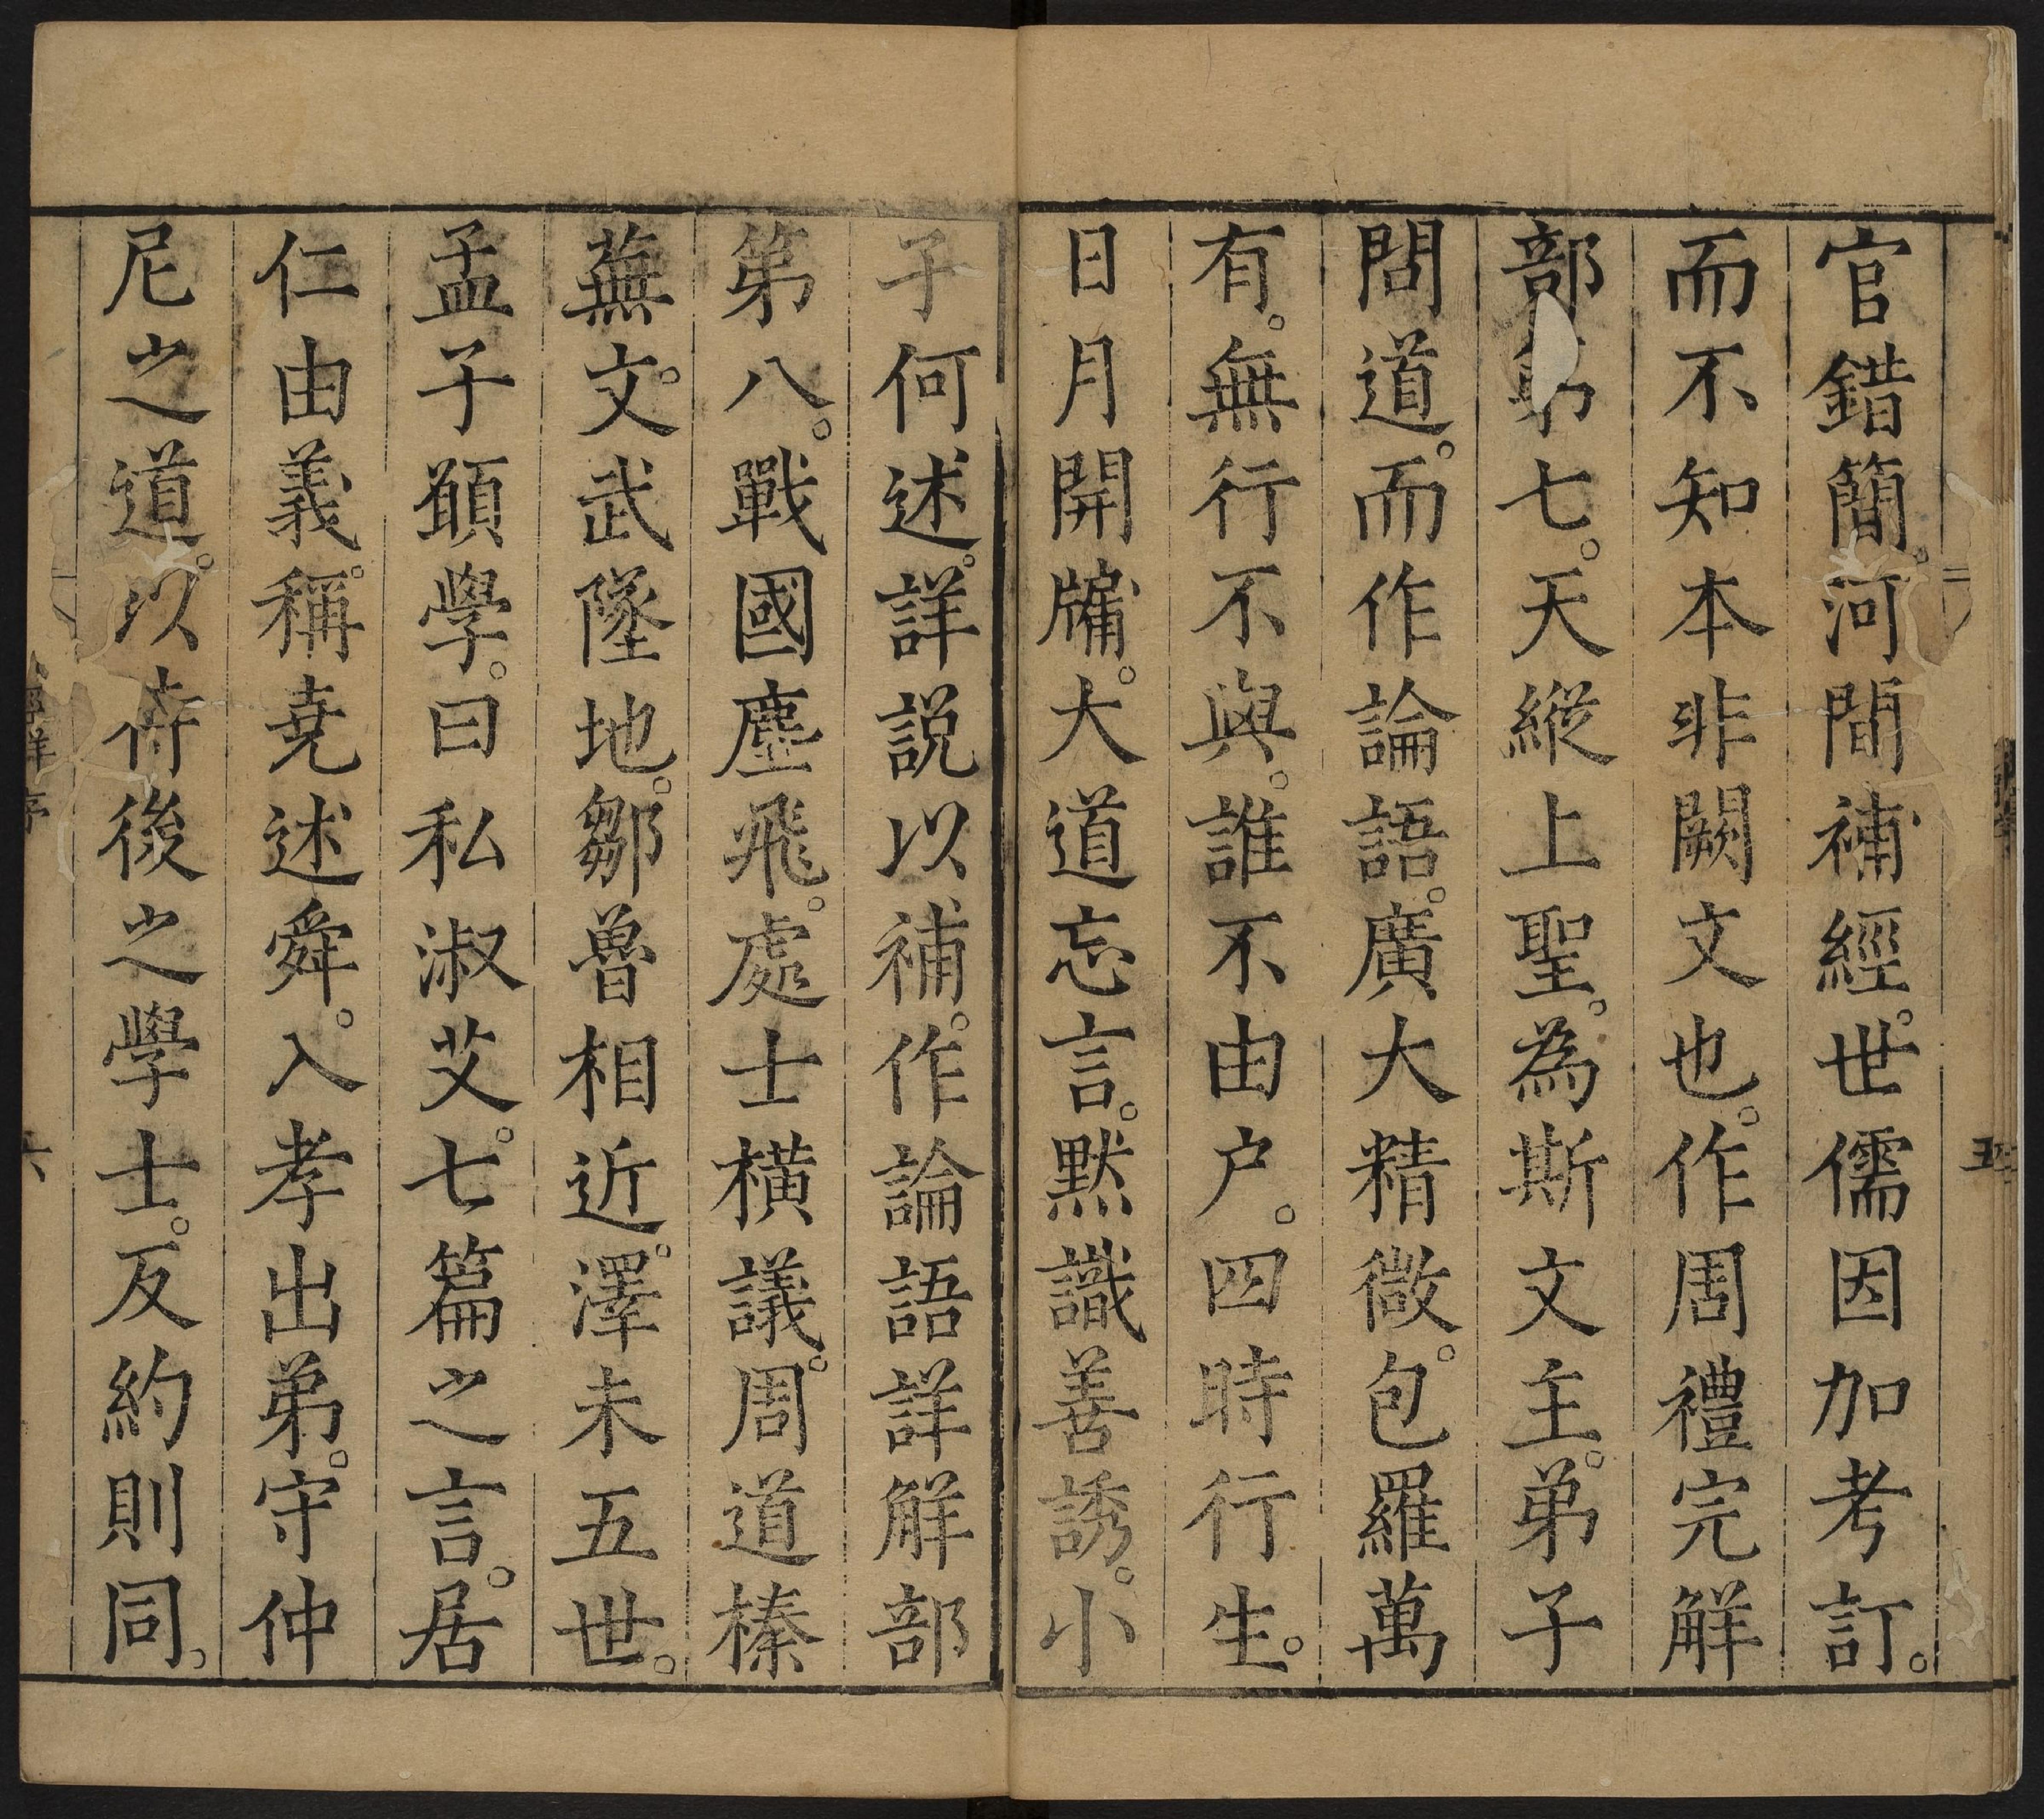 官錯簡。河間補經。世儒因加考訂。
而不知本非闕文也。作周禮完解
部第七。天縱上聖。為斯文主。弟子
問道。而作論語。廣大精微。包羅萬
有。無行不與。誰不由户。四時行生。
日月開牖。大道忘言。黙識善誘。小
子何述。詳説以補。作論語詳解部
第八。戰國塵飛。處士橫議。周道榛
蕪。文武墜地。鄒魯相近。澤未五世。
孟子願學。曰私淑艾。七篇之言。居
仁由義。稱尭述舜。入孝出弟。守仲
尼之道。以待後之學士。反約則同。
五
六